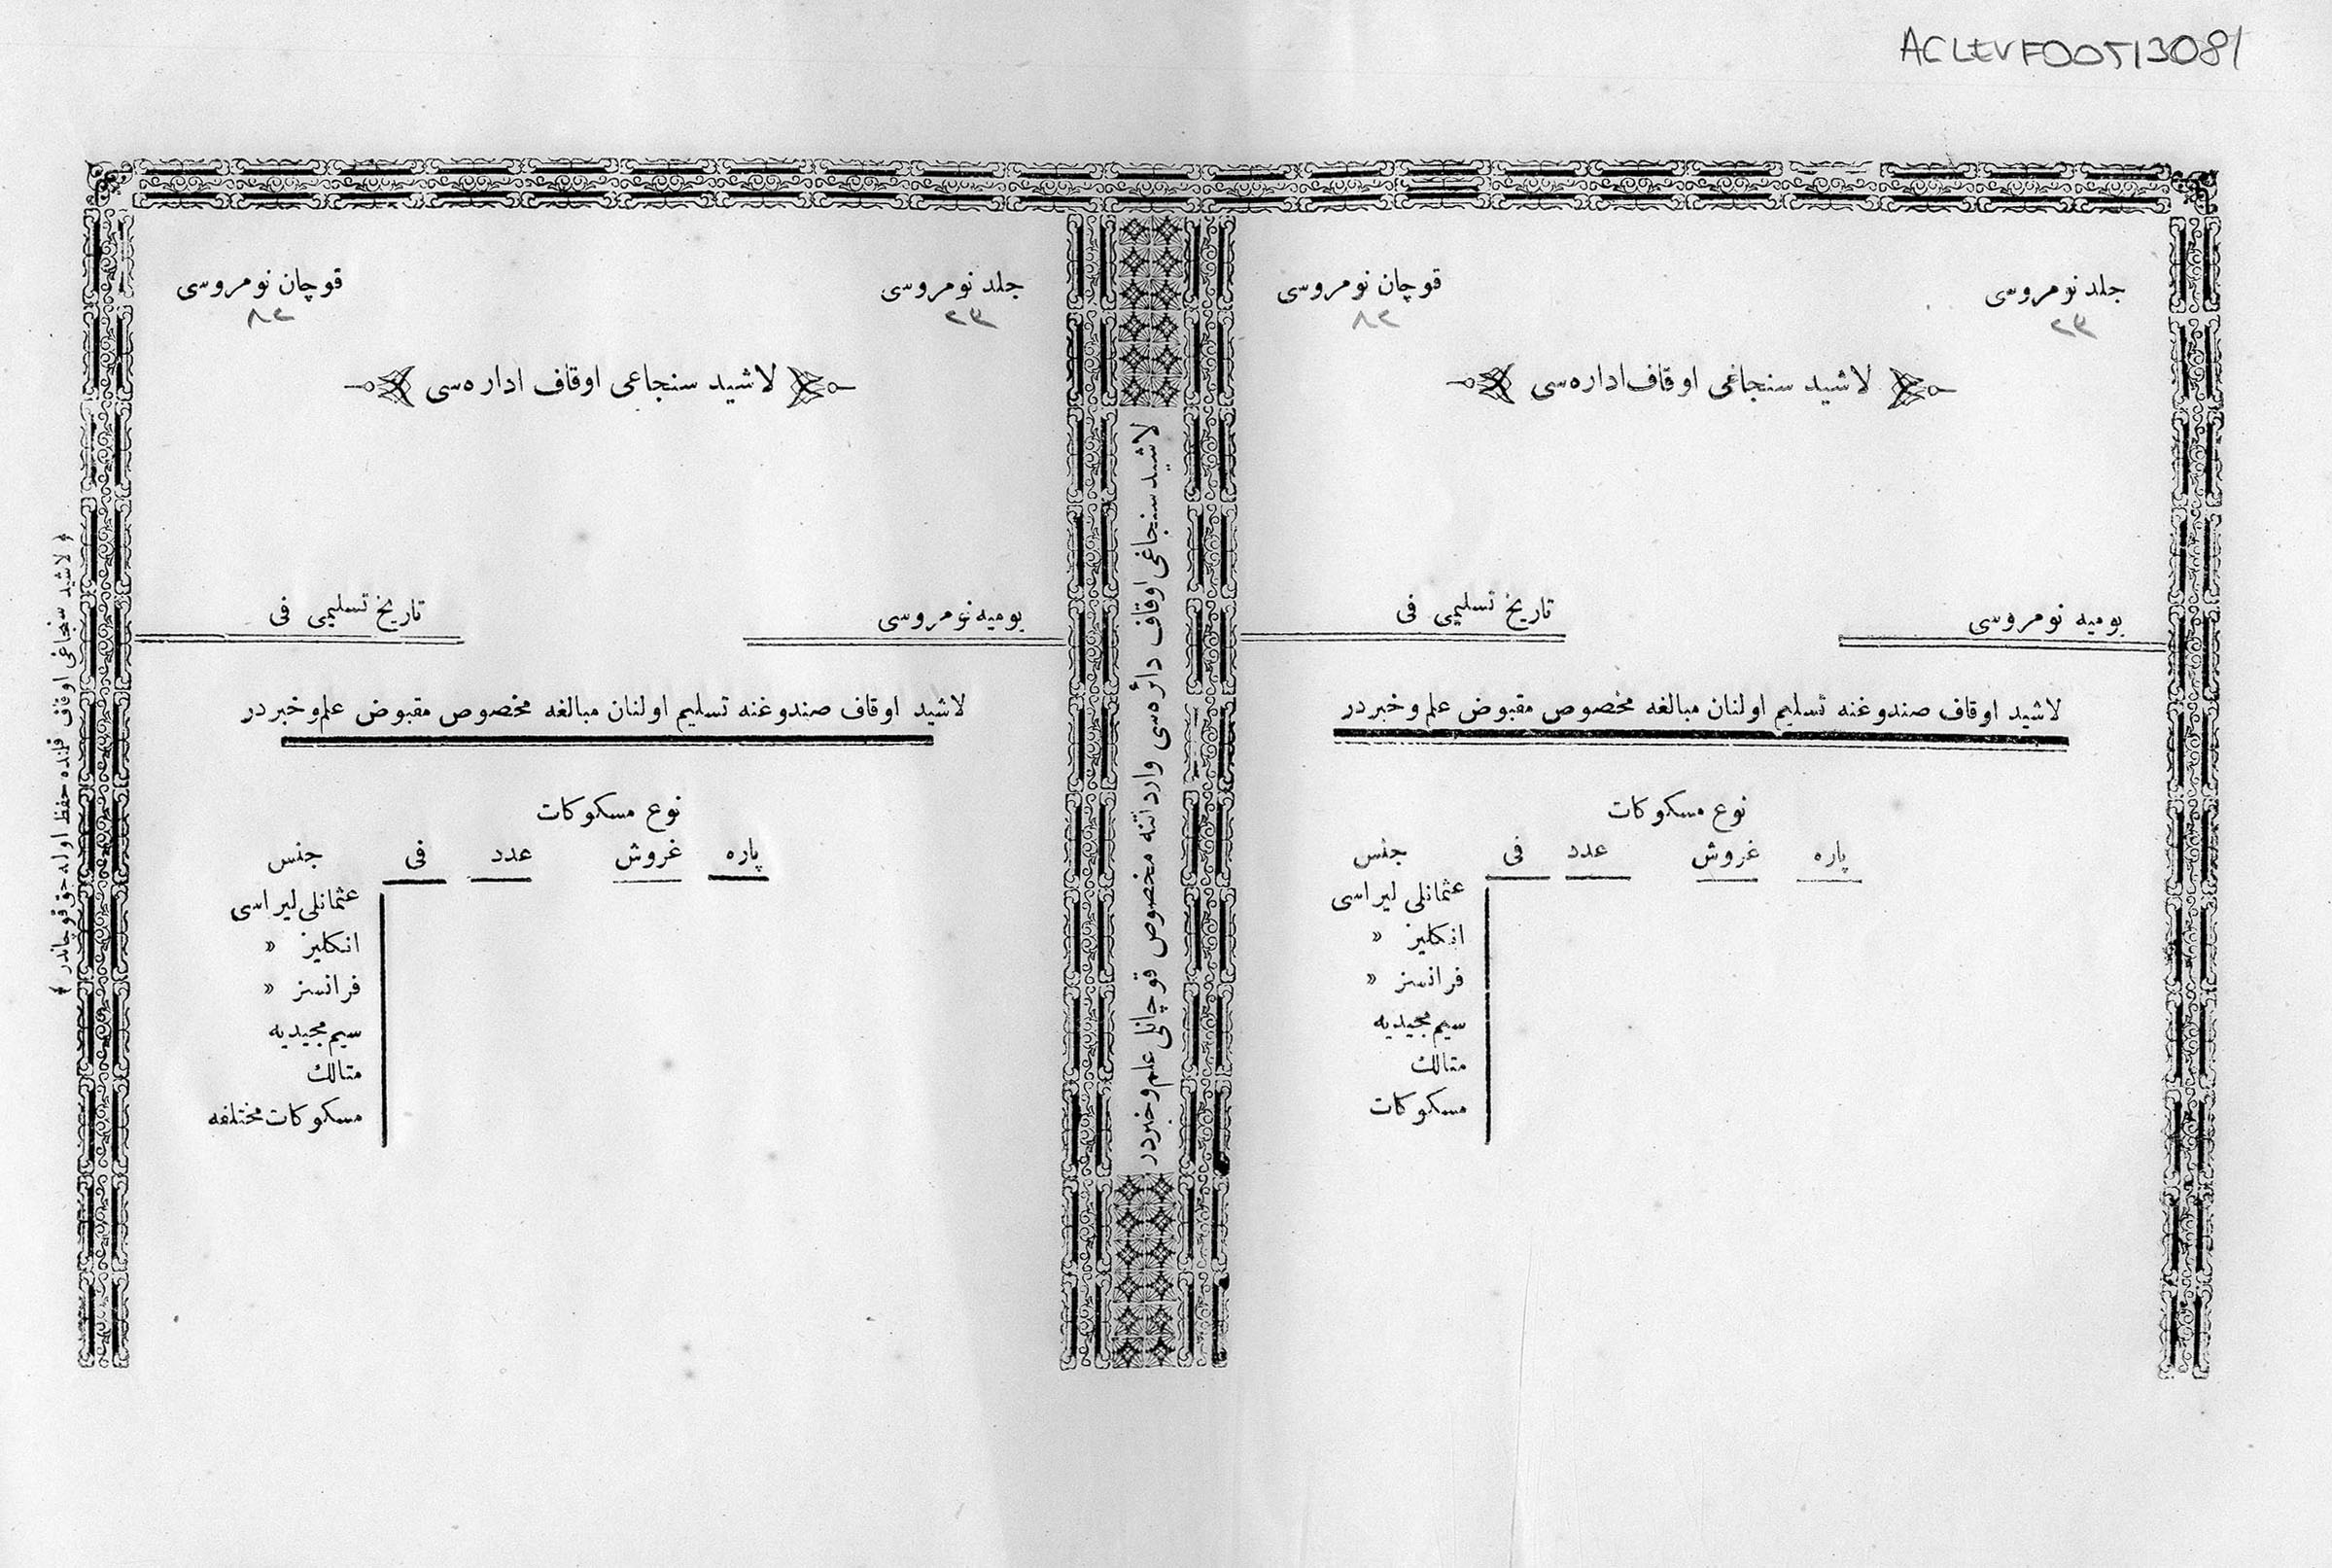 ACLEVF00513081
جلد نومروسی
٢٣
قوچان نومروسی
٨٢
لاشید سنجاغی اوقاف اداره‌سی
یومیه نومروسی
تاریخ تسلیمی فی
لاشید اوقاف صندوغنه تسلیم اولنان مبالغه مخصوص مقبوض علم و خبردر
نوع مسکوکات
جنس فی عدد غروش پاره
عثمانلی لیراسی
انکلیز »
فرانسز »
سیم مجیدیه
متالك
مسکوکات
لاشید سنجاغی اوقاف دائره‌سی وارداتنه مخصوص قوچانلی علم و خبردر
جلد نومروسی
٢٣
قوچان نومروسی
٨٢
لاشید سنجاعی اوقاف اداره‌سی
یومیه نومروسی
تاریخ تسلیمی فی
لاشید اوقاف صندوغنه تسلیم اولنان مبالغه مخصوص مقبوض علم و خبردر
نوع مسکوکات
جنس فی عدد غروش پاره
عثمانلی لیراسی
انکلیز »
فرانسز »
سیم مجیدیه
متالك
مسکوکات مختلفه
﴿ لاشید سنجاغی اوقاف قلنده حفظ اوله‌جق قوچاندر ﴾